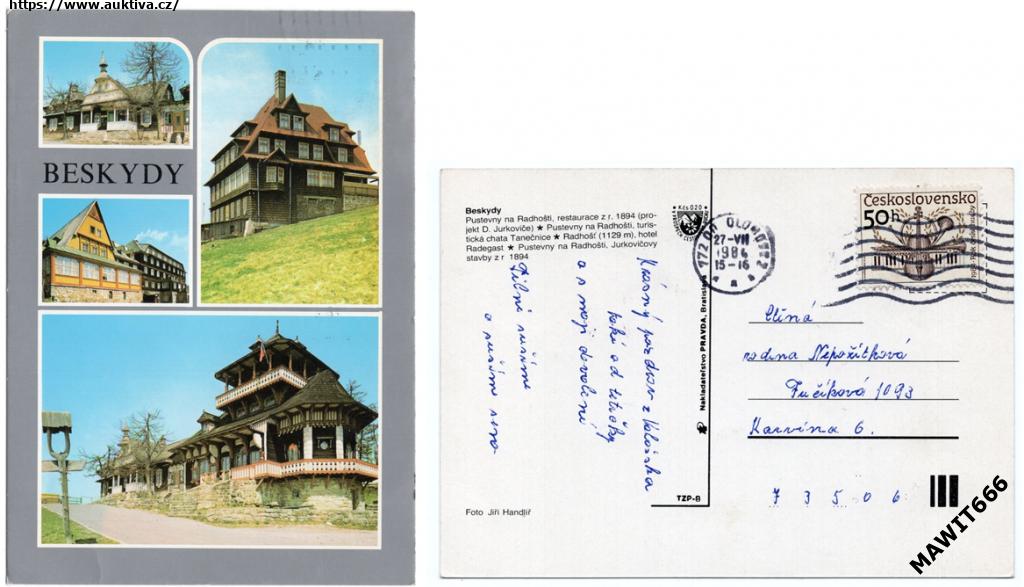 https://www.auktiva.cz/
BESKYDY
Beskydy
Pustevny na Radhošti, restaurace z r. 1894 (pro-
jekt D. Jurkoviče) ★ Pustevny na Radhošti, turis-
tická chata Tanečnice ★ Radhošť (1129 m), hotel
Radegast ★ Pustevny na Radhošti, Jurkovičovy
stavby z r 1894
Kčs 0,20
772 00 OLOMOUC 2
27-VII
1986
15-16
a
Československo
50h
Krásný pozdrav z Valašska
také od tetičky
a z mojí dovolené
Líbní
a
Nakladatelství PRAVDA, Bratislava
rodina Nepožitková
Fučíková 1093
Karviná 6.
7 3 5 0 6
TZP-B
Foto Jiří Handlíř
MAWIT666